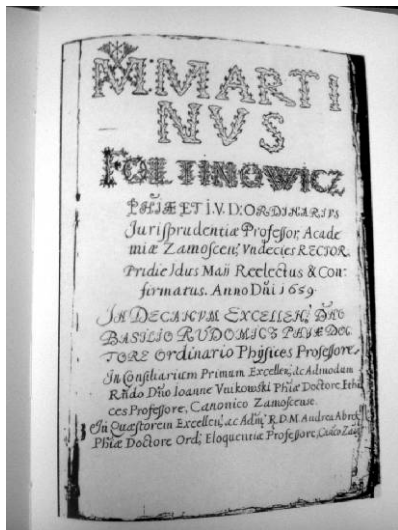 M. MARTI
NVS
FOLTINOWICZ
PHIÆ ET I. V. D: ORDINARIVS
Jurisprudentiæ Professor, Acade
miæ Zamoscen; Vndecies RECTOR.
Pridie Idus Maii Reelectus & Con:
firmatus. Anno Dñi 1659.
IN DECANVM EXCELLEN; DNO
BASILIO RUDOMICZ PHIÆ DOC
TORE Ordinario Physices Professore.
In Consiliarium Primum Excellen; ac Admodum
Rñdo Dño Ioanne Vnikowski Phiæ Doctore Ethi
ces Professore, Canonico Zamoscense.
In Quæstorem Excellen; ac Adm; R. D. M. Andrea
Phiæ Doctore Ord; Eloquentiæ Professore,